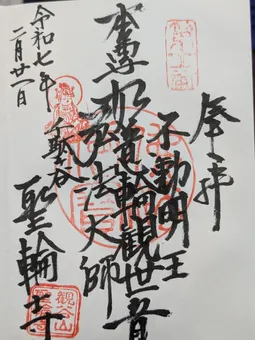 奉拝
不動明王
本尊如意輪觀世音
弘法大師
千駄ヶ谷
聖輪寺
令和七年
二月廿一日
観谷山
聖輪寺